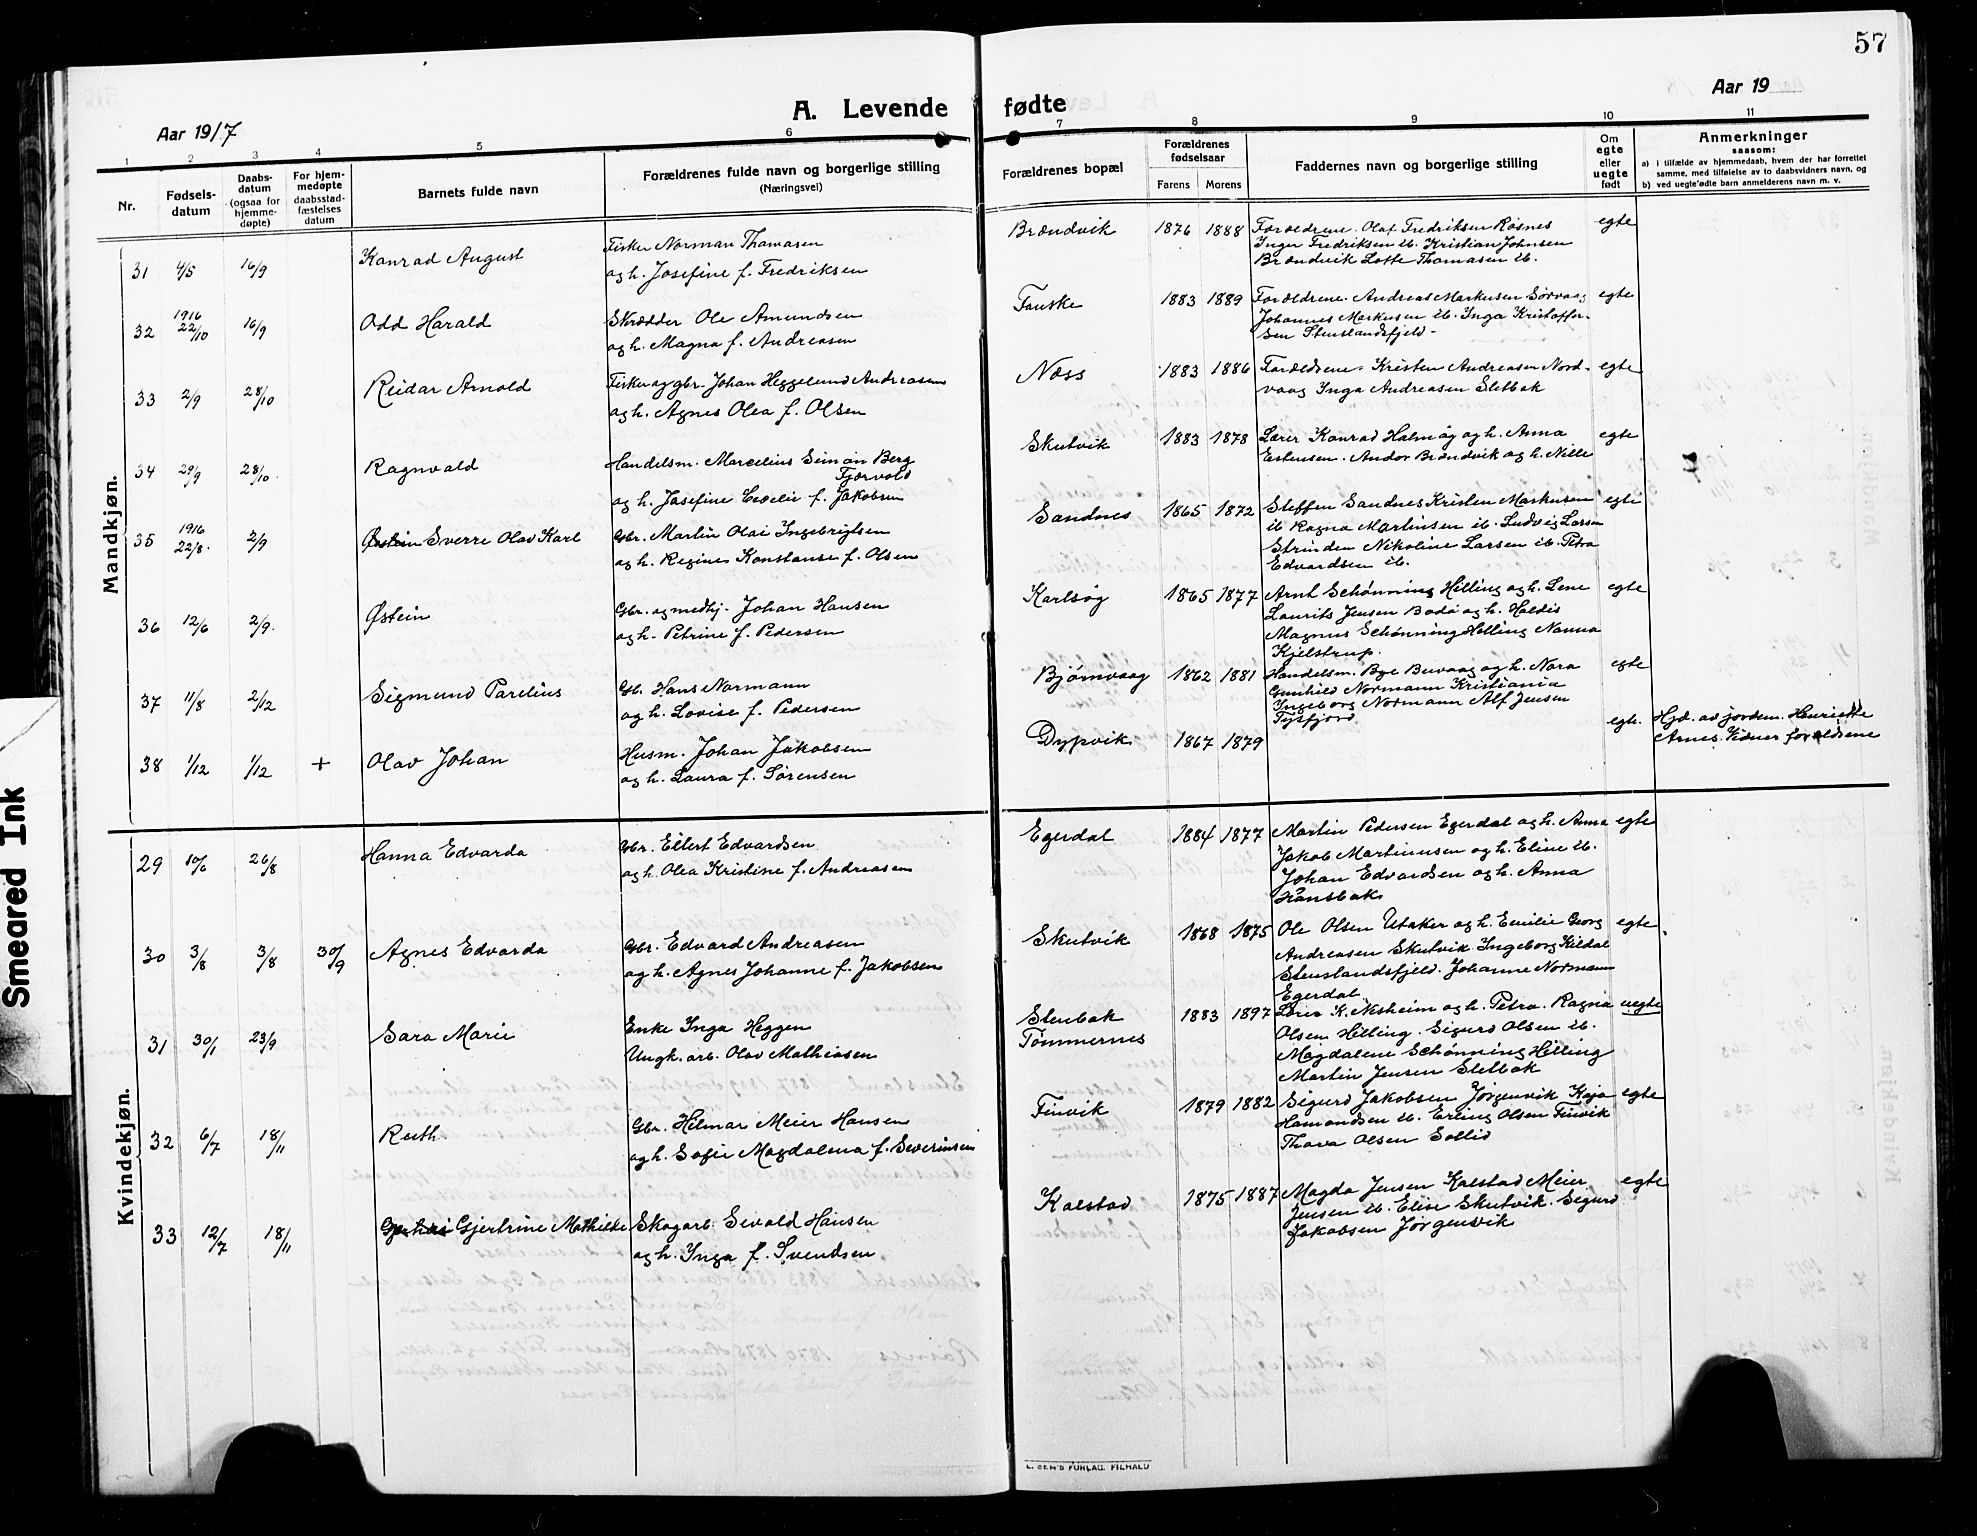 57
A. Levende fødte
Aar 1917
Aar 19
1 2 3 4 5 6 7 8 9 10 11
Nr.
Fødsels-
datum
Daabs-
datum
(ogsaa for
hjemme-
døpte)
For hjem-
medøpte
daabsstad-
fæstelses
datum
Barnets fulde navn
Forældrenes fulde navn og borgerlige stilling
(Næringsvei)
Forældrenes bopæl
Forældrenes
fødselsaar
Farens Morens
Faddernes navn og borgerlige stilling
Om
egte
eller
uegte
født
Anmerkninger
saasom:
a) i tilfælde av hjemmedaab, hvem der har forrettet
samme, med tilføielse av to daabsvidners navn, og
b) ved uegte fødte barn anmelderens navn m. v.
Mandkjøn.
31 4/5 16/9 Konrad August
Fisker Norman Thomasen
og h. Josefine f. Fredriksen
Brændvik 1876 1888
Forældrene. Olaf Fredriksen Røsnes
Inger Fredriksen ib. Kristian Johnsen
Brændvik Lotte Thomasen ib.
egte
32 1916 22/10 16/9 Odd Harald
Skrædder Ole Amundsen
og h. Magna f. Andreasen
Fauske 1883 1889
Forældrene. Andreas Markusen Sørvaag
Johannes Markusen ib. Inga Kristoffer-
sen Stenslandsfjeld-
egte
33 2/9 28/10 Reidar Arnold
Fisker og gbr. Johan Heggelund Andreasen
og h. Agnes Olea f. Olsen
Næss 1883 1886
Forældrene Kristen Andreasen Nord-
vaag Inga Andreasen Sletbak
egte
34 29/9 28/10 Ragnvald
Handelsm. Marcelius Simon Berg
Fjorvold
og h. Josefine Cecelie f. Jakobsen
Skutvik 1883 1878
Lærer Konrad Halmøy og h. Anna
Estensen. Andor Brændvik og h. Nille
egte
35 1916 22/8 2/9 Østein Sverre Olav Karl
Gbr. Martin Olai Ingebrigtsen
og h. Regine Konstanse f. Olsen
Sandnes 1865 1872
Steffen Sandnes Kristen Markusen
ib Ragna Martinsen ib. Ludvig Larsen
Strinden Nikoline Larsen ib. Petra
Edvardsen ib.
egte
36 12/6 2/9 Østein
Gbr. og medhj. Johan Hansen
og h. Petrine f. Pedersen
Karlsøg 1865 1877
Arnt Schønning Helling og h. Lene
Laurits Jensen Bodø og h. Haldis
Magnus Schønning Helling Nanna
Kjelstrup.
egte
37 11/8 2/12 Sigmund Parelius
Gb. Hans Normann
og h. Lovise f. Pedersen
Bjørnvaag 1862 1881
Handelsm. Bye Buvaag og h. Nora
Gunhild Normann Kristiania
Ingeborg Normann Alf Jensen
Tysfjord
egte
38 1/12 1/12 + Olav Johan
Husm. Johan Jakobsen
og h. Laura f. Sørensen
Dypvik 1867 1879
egte.
Hjd. av jordem. Henriette
Arnes. Vidner forældrene
Kvindekjøn.
29 10/6 26/8 Hanna Edvarda
Gbr. Eilert Edvardsen
og h. Olea Kristine f. Andreasen
Egerdal 1884 1877
Martin Pedersen Egerdal og h. Anna
Jakob Martinusen og h. Eline ib.
Johan Edvardsen og h. Anna
Hansbak
egte
30 3/8 3/8 30/9 Agnes Edvarda
Gbr. Edvard Andreasen
og h. Agnes Johanne f. Jakobsen
Skutvik 1868 1875
Ole Olsen Utaker og h. Emilie Georg
Andreasen Skutvik Ingeborg Kildal
Stenslandsfjeld. Johanne Normann
Egerdal
egte.
31 30/1 23/9 Sara Marie
Enke Inga Heggen
Ungk. arb. Olav Mathiasen
Slenbak
Tømmernes
1883 1897
Lærer K. Nesheim og h. Petra. Ragna
Olsen Helling. Sigurd Olsen ib.
Magdalene Schønning Helling
Martin Jensen Sletbak
uegte
32 6/7 18/11 Ruth.
Gbr. Hilmar Meier Hansen
og h. Sofie Magdalena f. Severinsen
Finvik 1879 1882
Sigurd Jakobsen Jørgenvik Kaja
Hamondsen ib. Erling Olsen Finvik
Thora Olsen Sollid
egte
33 12/7 18/11 Gjertrine Mathilde
Skogarb. Sivald Hansen
og h. Inga f. Svendsen
Kalstad 1875 1887
Magda Jensen Kalstad Meier
Jensen ib. Elise Skutvik. Sigurd
Jakobsen Jørgensvik
egte
Smeared Ink